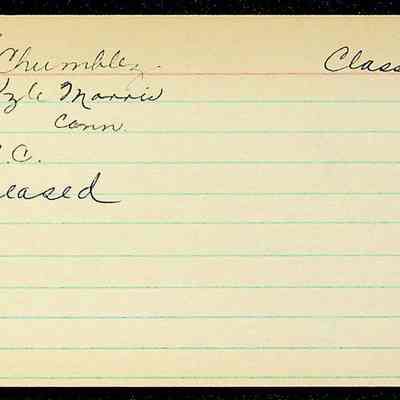 Chumbley. Class
Kyle Morris
Conn.
.C.
eased